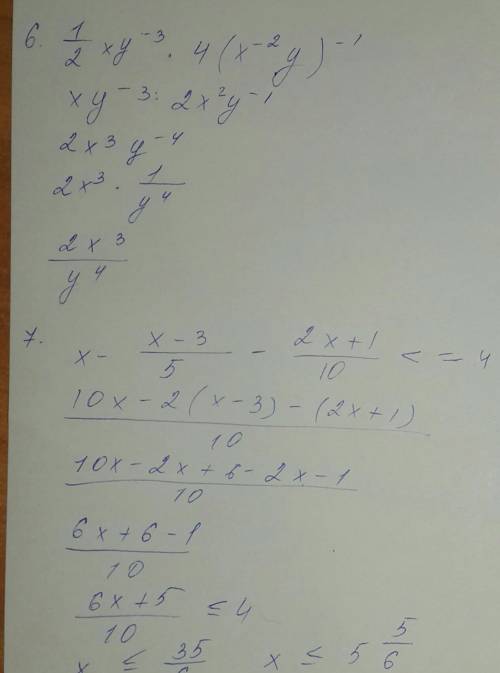 6. 1/2 xy⁻³ · 4(x⁻²y)⁻¹
xy⁻³ · 2x²y⁻¹
2x³y⁻⁴
2x³ · 1/y⁴
2x³/y⁴
7. x - (x-3)/5 - (2x+1)/10 < = 4
(10x-2(x-3)-(2x+1))/10
(10x-2x+6-2x-1)/10
(6x+6-1)/10
(6x+5)/10 ≤ 4
x ≤ 35/6 x ≤ 5 5/6